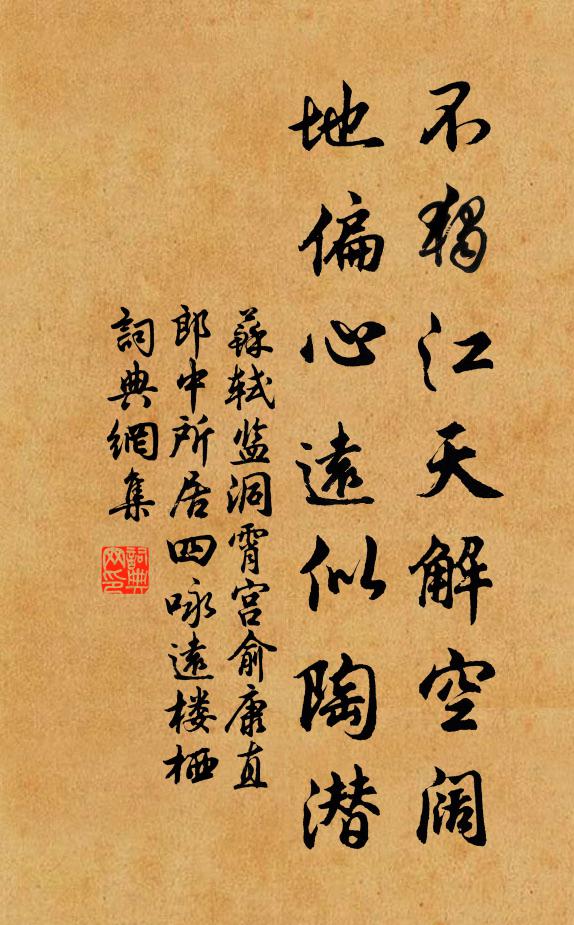 不獨江天解空阔
地偏心遠似陶潜
蘇轼监洞霄宫俞康直
郎中所居四咏遠楼栖
詞典網集
詞典網印